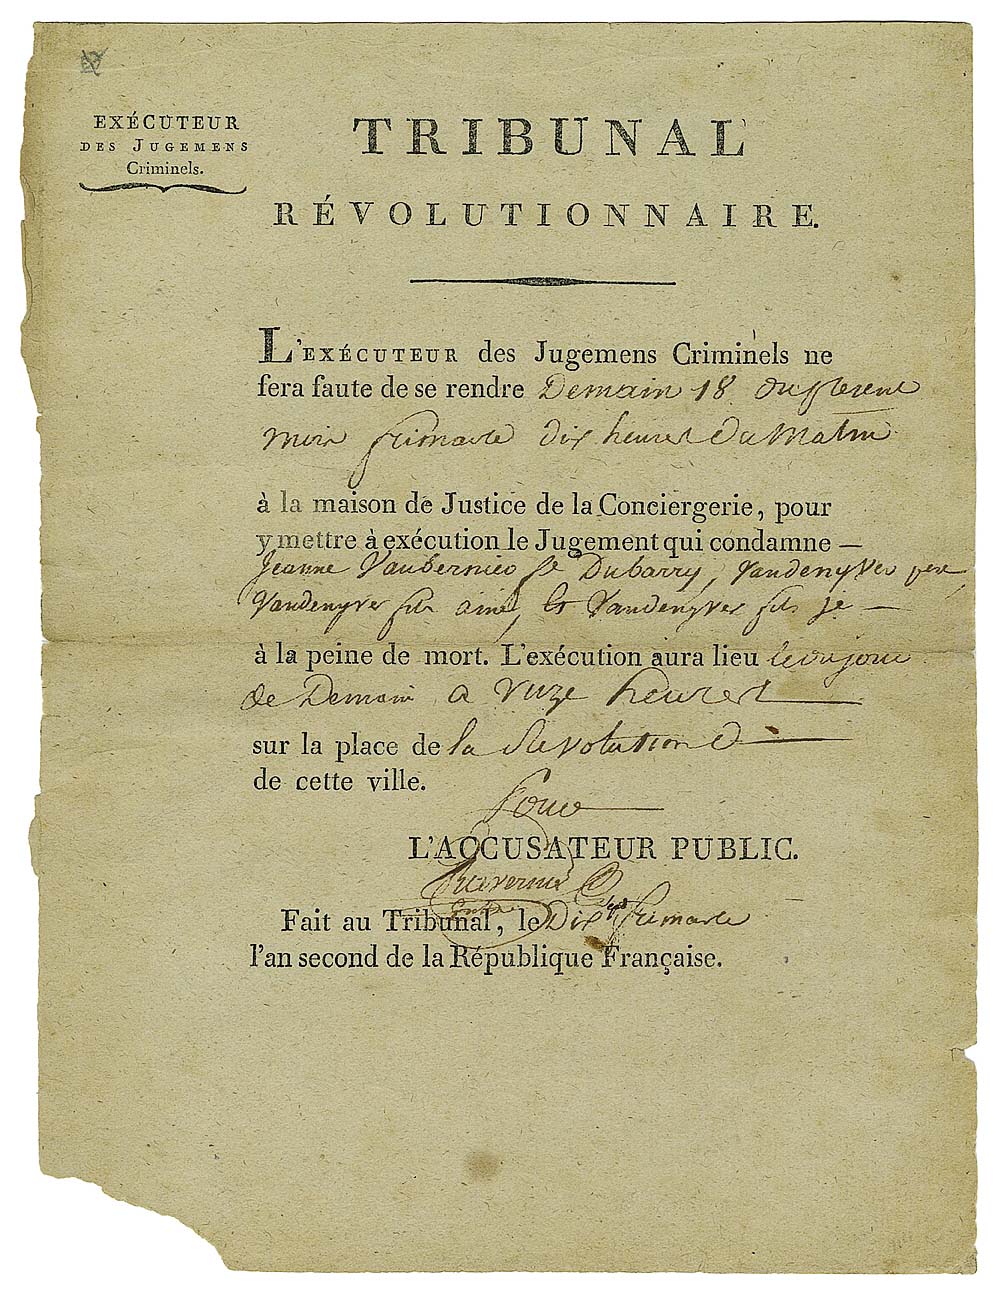 EXÉCUTEUR
DES JUGEMENS
Criminels.
TRIBUNAL
RÉVOLUTIONNAIRE.
L'EXÉCUTEUR des Jugemens Criminels ne
fera faute de se rendre Demain 18 du present
mois frimaire dix heures du Matin
à la maison de Justice de la Conciergerie, pour
y mettre à exécution le Jugement qui condamne —
Jeanne Vaubernier fe Dubarry, Vandenyver pere
Vandenyver fils ainé, et Vandenyver fils je —
à la peine de mort. L'exécution aura lieu le jour
de Demain a unze heures
sur la place de la Revolution
de cette ville.
L'ACCUSATEUR PUBLIC.
Fait au Tribunal, le Dix sept frimaire
l'an second de la République Française.